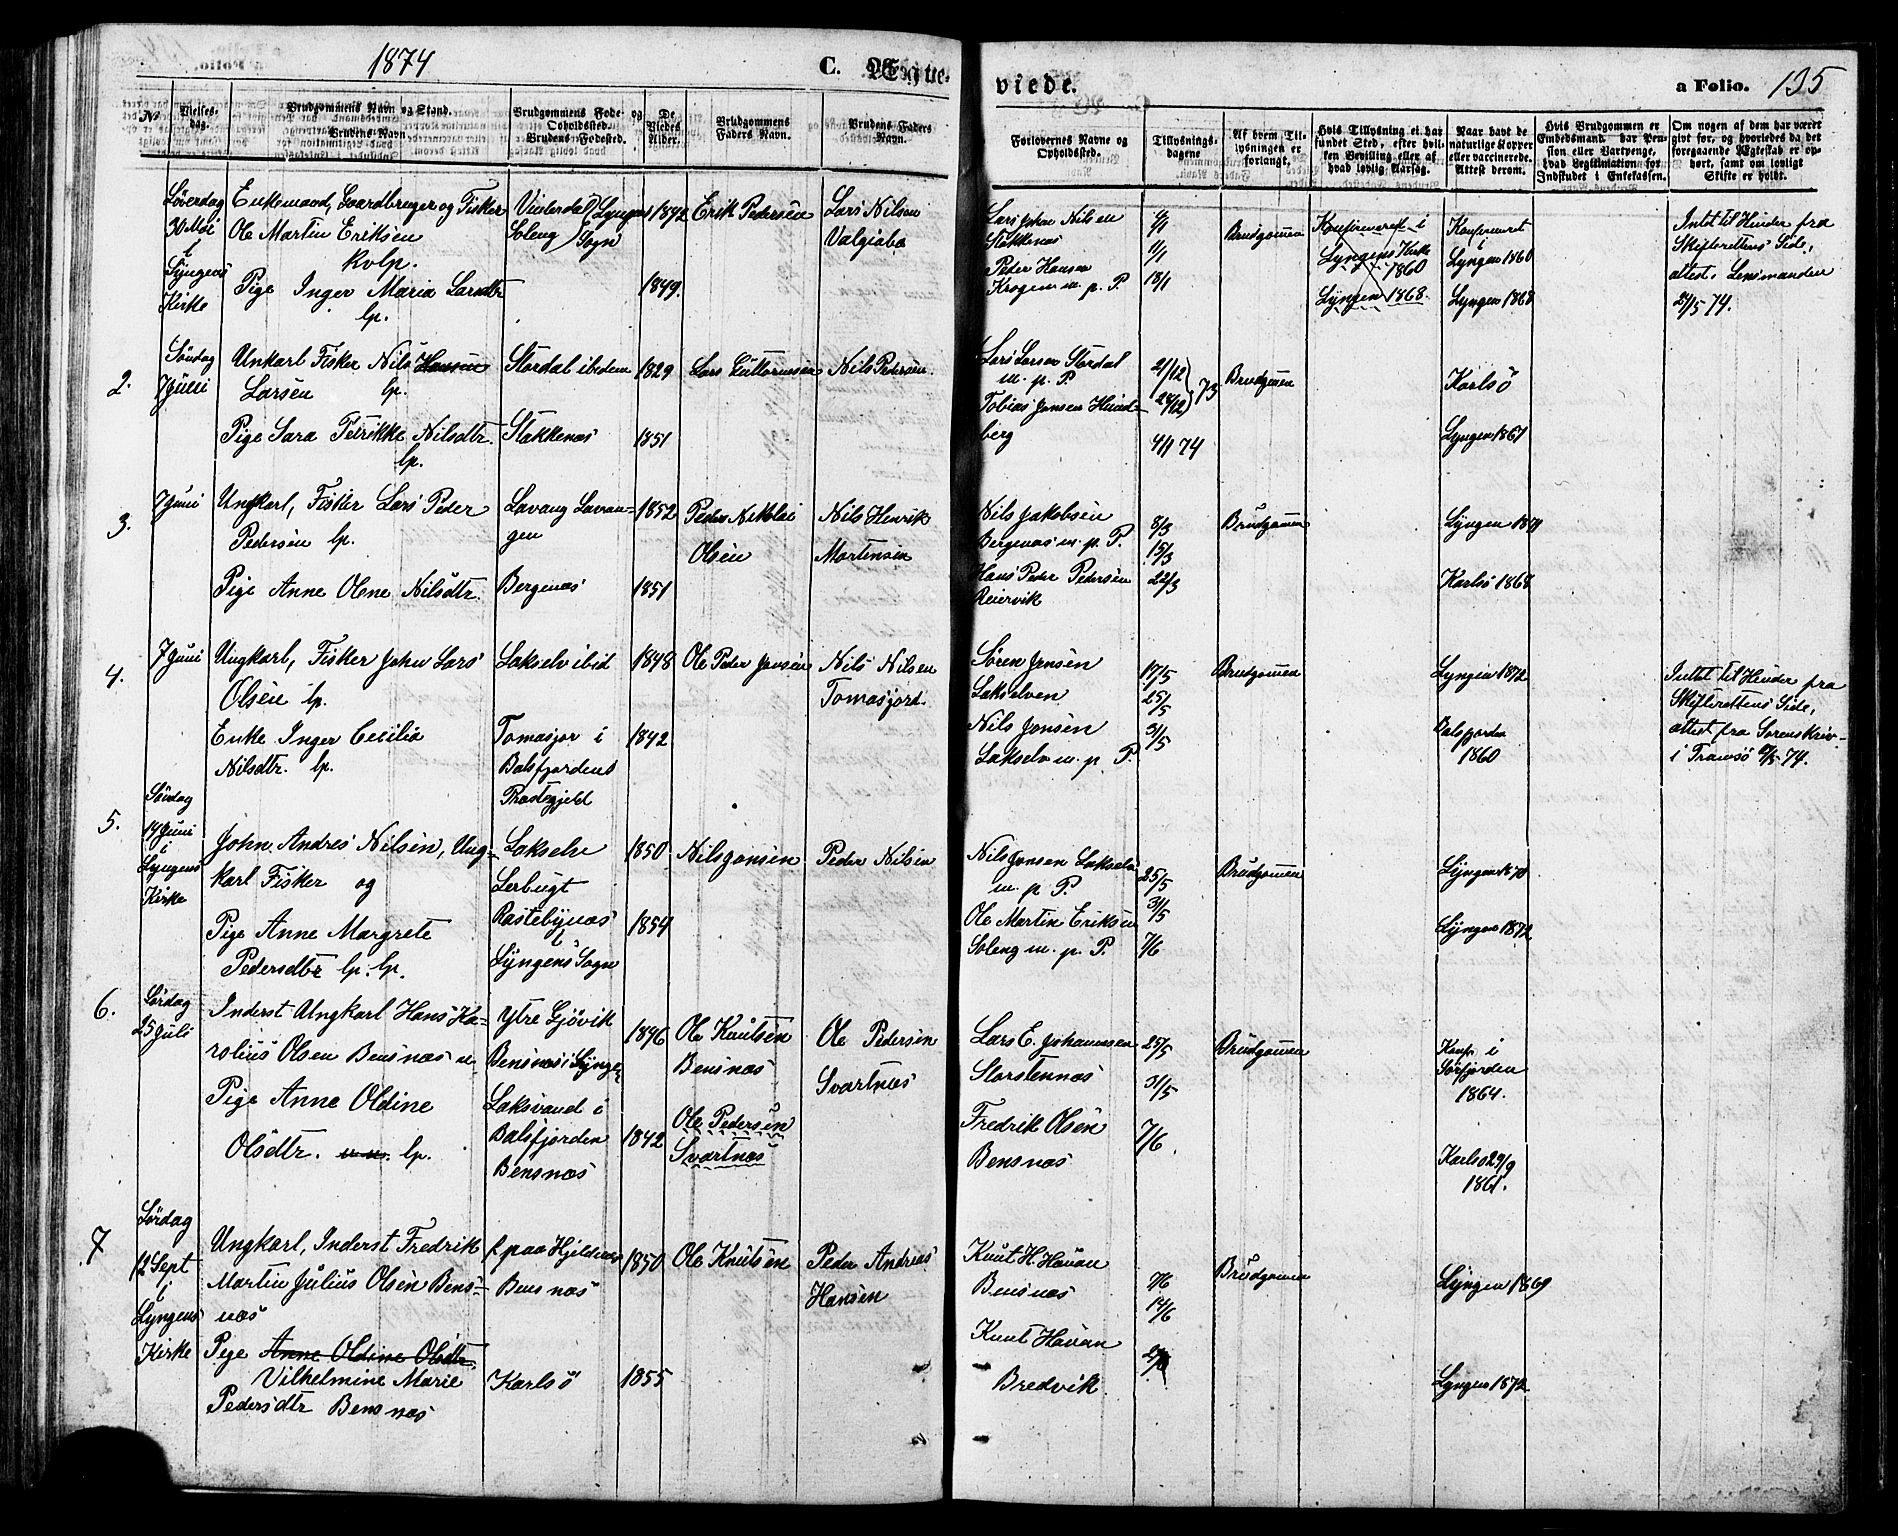 1874
C. Ægte-
viede.
a Folio. 135
No
Vielses-
dag.
Brudgommens Navn og Stand.
Brudens Navn
Brudgommens Føde- og
Opholdssted.
Brudens Fødested.
De
Viedes
Alder.
Brudgommens
Faders Navn.
Brudens Faders
Navn.
Forlovernes Navne og
Opholdssted.
Tillysnings-
dagene
Af hvem Til-
lysningen er
forlangt,
Hvis Tillysning ei har
fundet Sted, efter hvil-
ken Bevilling eller af
hvad lovlig Aarsag.
Naar havt de
naturlige Kopper
eller vaccinerede.
Attest derom.
Hvis Brudgommen er
Embedsmand, har Pen-
sion eller Vartpenge,
hvad Legitimation for
Indskudet i Enkekassen.
Om nogen af dem har været
gift før, og hvorledes da det
foregaaende Ægteskab er op-
hørt, samt om lovligt
Skifte er holdt.
Løverdag
30 Mai
i
Lyngens
Kirke
Enkemand, Gaardbruger og Fisker
Ole Martin Eriksen
kvlp.
Pige Inger Maria Larsdtr
lp.
Soleng
Lyngens
Sogn
1842
1849.
Erik Pedersen
Lars Nilsen
Lars Johan Nilsen
Stokkenæs
Peder Hansen
m. p. P.
4/1
11/1
18/1
Brudgommen
Konfirmeret i
Lyngens Kirke
1860
Lyngen 1868.
Konfirmert
i
Lyngen 1860
Lyngen 1868
Intet til Hinder fra
Skifterettens Side,
attest. Lensmanden
21/5 74.
2.
Søndag
7 Juni
Unkarl Fisker Nils Hansen
Larsen lp.
Pige Sara Petrikke Nilsdtr.
lp.
Stordal ibidem
Stakkenæs
1829
1851
Lars Guttormsen
Nils Pedersen
Lars Larsen Stordal
m. p. P.
Tobias Jonsen Hund-
berg
21/12
28/12
73
4/1 74
Brudgommen
Karlsö
Lyngen 1867
3.
7 Juni
Ungkarl, Fisker Lars Peder
Pedersen lp.
Pige Anne Olene Nilsdtr.
Lavang Lavan-
gen
Bergenæs
1852
1851
Peder Nikolai
Olsen
Nils Henrik
Martensen
Nils Jakobsen
Bergenæs m. p. P.
Hans Peder Pedersen
Reiervik
8/3
15/3
22/3
Brudgommen
Lyngen
Karlsö 1868
4.
7 Juni
Ungkarl, Fisker John Lars
Olsen lp.
Enke Inger Cecilia
Nilsdtr. lp.
Lakselv ibid
Tomasjor i
Balsfjordens
Præstegjeld
1848
1842
Ole Peder Jensen
Nils Nilsen
Tomasjord
Søren Jensen
Lakselven
Nils Jonsen
Lakselv m. p. P.
17/5
25/5
31/5
Brudgommen
Lyngen 1872
Balsfjorden
1860
Intet til Hinder fra
Skifterettens Side,
attest fra Sorenskriv-
i Tromsö 74.
5.
Søndag
14 Juni
i
Lyngens
Kirke
John Andres Nilsen, Ung-
karl Fisker og
Pige Anne Margrete
Pedersdtr lp. lp.
Lakselv
Lerbugt
Rastebynæs
i
Lyngens Sogn
1850
1854
Nils Jonsen
Peder Nilsen
Nils Jonsen Lakselv
m. p. P.
Ole Martin Eriksen
Soleng m. p. P.
25/5
31/5
7/6
Brudgommen
Lyngen 1870
Lyngen 1872
6.
Lørdag
25 Juli
Inderst Ungkarl Hans Ka-
rolius Olsen Bensnæs
Pige Anne Oldine
Olsdtr. lp.
Ytre Gjövik
Bensnæs i Lyngen
Laksvand i
Balsfjorden
Bensnæs
1846
1842
Ole Knutsen
Bensnæs
Ole Pedersen
Svartnæs
Ole Pedersen
Svartnæs
Lars E. Johannesen
Storstennæs
Fredrik Olsen
Bensnæs
25/5
31/5
7/6
Brudgommen
Konf. i
Sörfjorden
1864.
Karlsö 29/9
1861.
7
Lørdag
12 Sept
i
Lyngens
Kirke
Ungkarl, Inderst Fredrik
Martin Julius Olsen Bens-
næs
Pige Anne Oldine Olsdtr
Vilhelmine Marie
Pedersdtr Bensnæs
f. paa
Bensnæs
Karlsö
1850
1855
Ole Knutsen
Peder Andreas
Hansen
Knut H. Havan
Bensnæs
Knut Havan
Bredvik
7/6
14/6
Brudgommen
Lyngen 1869
Lyngen 1872